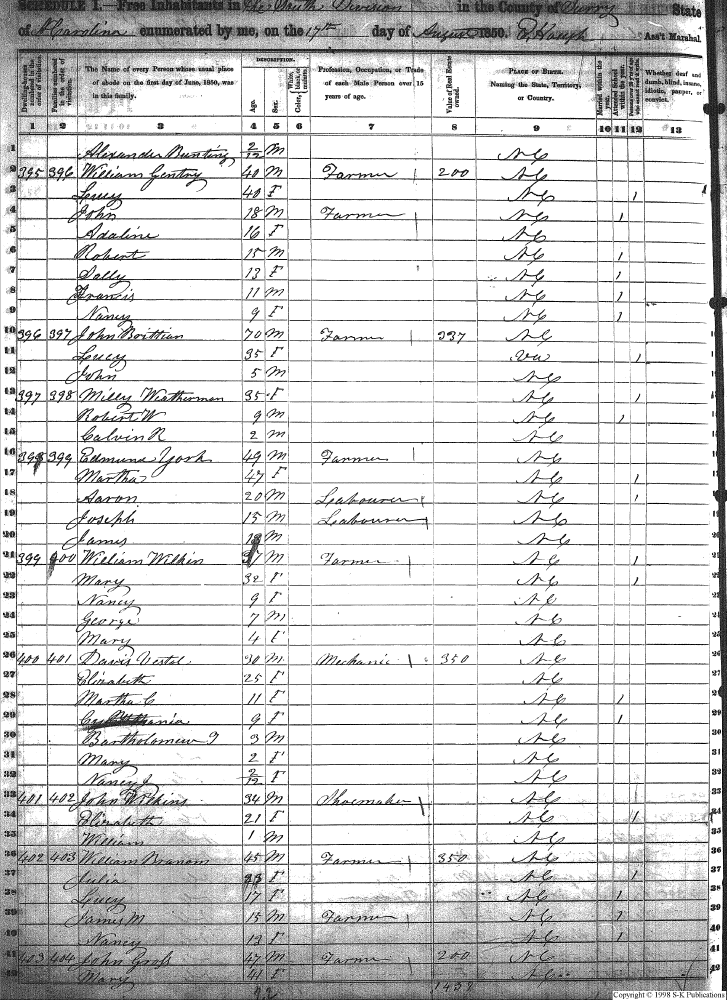 SCHEDULE I.—Free Inhabitants in The South Division in the County of Surry State
of N Carolina enumerated by me, on the 17th day of August 1850. Ass't Marshal.
Dwelling-houses numbered in the order of visitation.
Families numbered in the order of visitation.
The Name of every Person whose usual place of abode on the first day of June, 1850, was in this family.
DESCRIPTION.
Age.
Sex.
Color, White, black, or mulatto.
Profession, Occupation, or Trade of each Male Person over 15 years of age.
Value of Real Estate owned.
PLACE OF BIRTH. Naming the State, Territory, or Country.
Married within the year.
Whether deaf and dumb, blind, insane, idiotic, pauper, or convict.
1 2 3 4 5 6 7 8 9 10 11 12 13
1 Alexander Bunting 2/12 M NC
2 395 396 William Gentry 40 M Farmer 200 NC
3 Lucy 40 F NC 1
4 John 18 M Farmer NC 1
5 Adaline 16 F NC
6 Robert 15 M NC 1
7 Sally 13 F NC 1
8 Francis 11 M NC 1
9 Nancy 9 F NC 1
10 396 397 John Brittian 70 M Farmer 337 NC
11 Lucy 35 F Va 1
12 John 5 M NC
13 397 398 Milly Weatherman 35 F NC 1
14 Robert W 9 M NC 1
15 Calvin R 2 M NC
16 398 399 Edmund York 49 M Farmer NC
17 Martha 47 F NC 1
18 Aaron 20 M Leabourer NC 1
19 Joseph 15 M Leabourer NC
20 James M NC
21 399 400 William Wilkin M Farmer NC 1
22 Mary 32 F NC 1
23 Nancy 9 F NC
24 George 7 M NC
25 Mary 4 F NC
26 400 401 Davis Vestal 30 M Mechanic 350 NC
27 Elizabeth 25 F NC
28 Martha C 11 F NC 1
29 9 F NC 1
30 Bartholomew 3 M NC
31 Mary 2 F NC
32 Nancy J 2/12 F NC
33 401 402 John Wilkins 34 M Shoemaker NC
34 Elizabeth 21 F NC 1
35 William 1 M NC
36 402 403 William Branom 45 M Farmer 350 NC
37 Julia F NC 1
38 Lucy 17 F NC 1
39 James M 15 M Farmer NC 1
40 Nancy 13 F NC 1
41 403 404 John Groß 47 M Farmer 200 NC
42 Mary 41 F NC
Copyright © 1998 S-K Publications